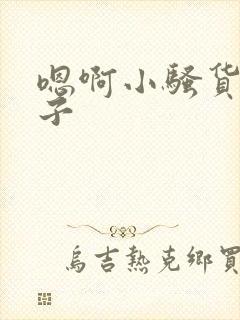 嗯啊小骚货
子
烏吉熱克鄉買